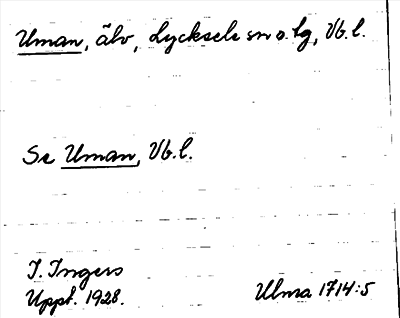 Uman, älv, Lycksele sn o. lg, Vb. l.
Se Uman, Vb. l.
I. Ingers
Uppt. 1928.
Ulma 1714:5